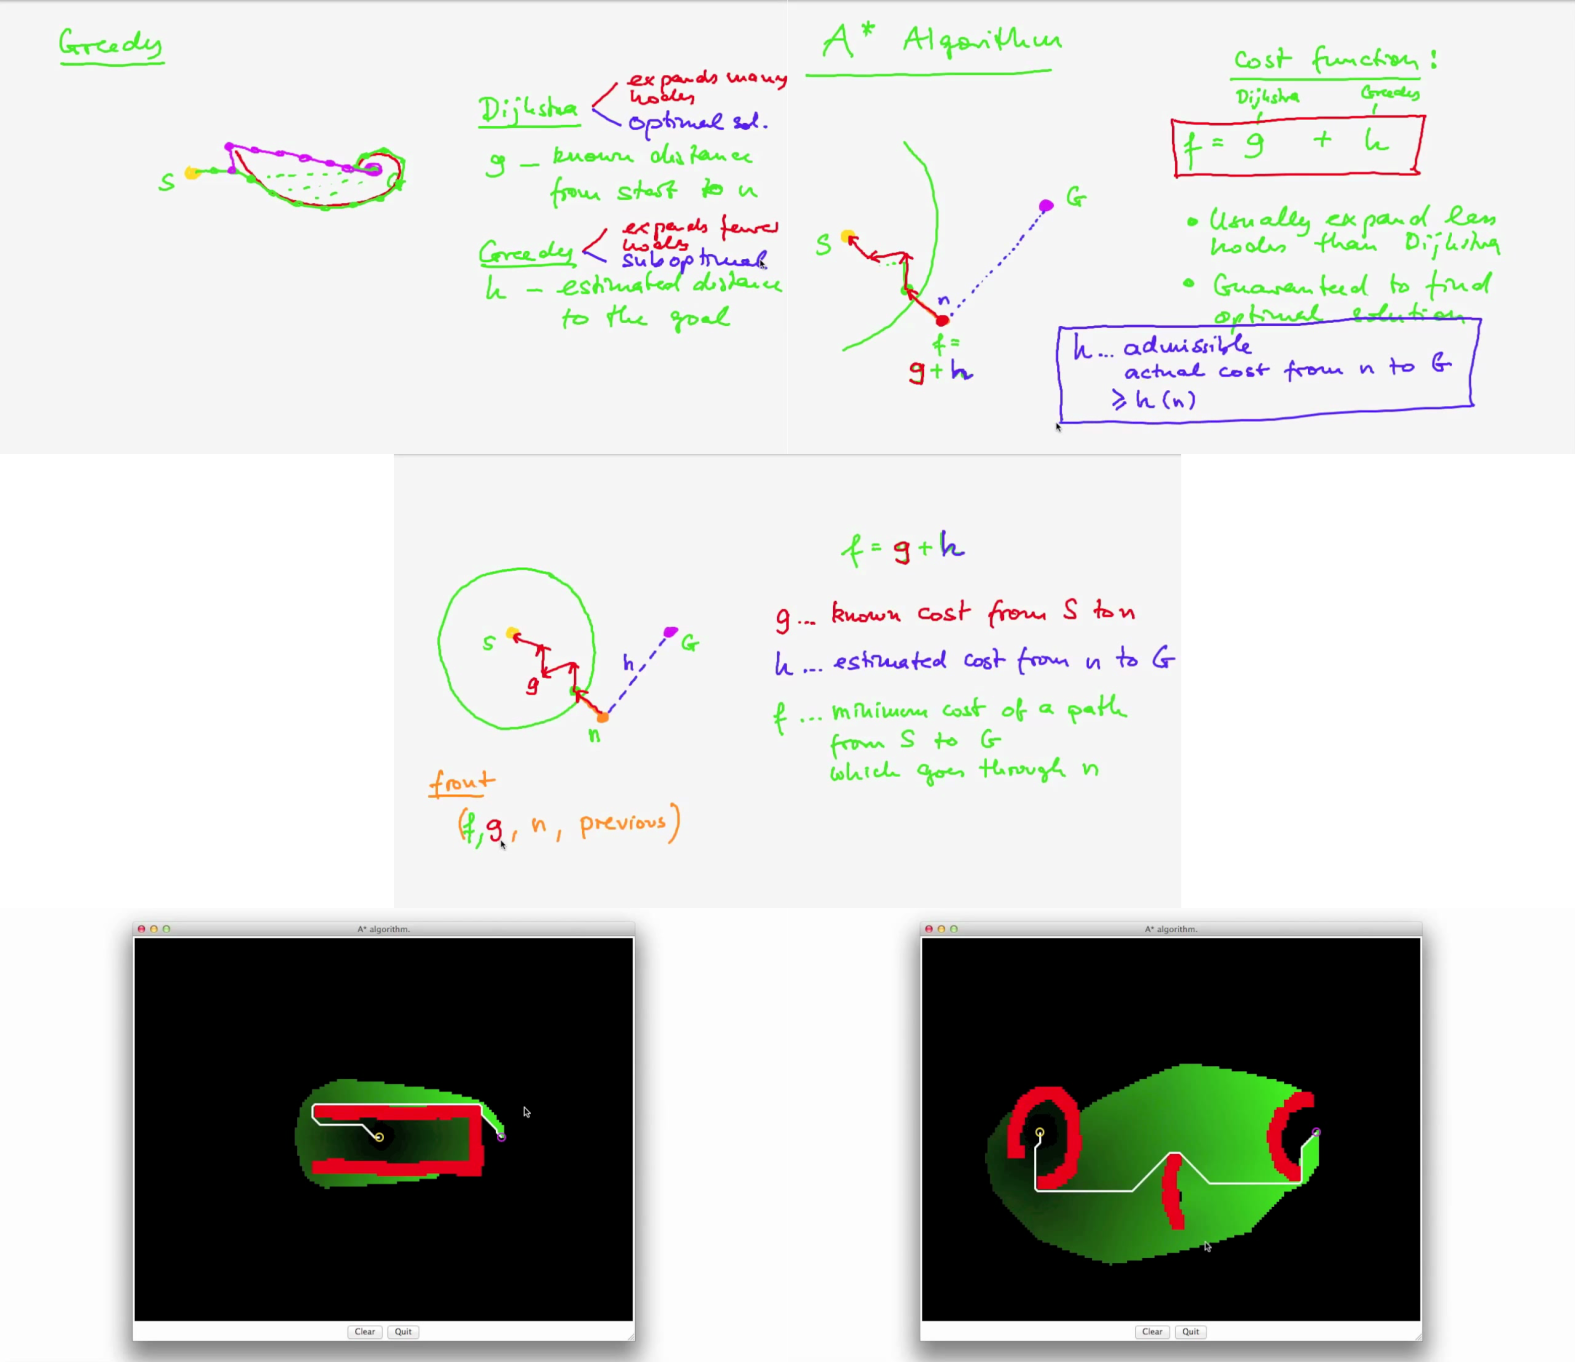 Greedy
Dijkstra
expands many
nodes
optimal sol.
g – known distance
from start to n
Greedy
expands fewer
nodes
suboptimal
h – estimated distance
to the goal
S
G
A* Algorithm
Cost function:
Dijkstra Greedy
f = g + h
• Usually expand less
nodes than Dijkstra
• Guaranteed to find
optimal solution
h... admissible
actual cost from n to G
≥ h(n)
S
G
n
f =
g + h
f = g + h
g ... known cost from S to n
h ... estimated cost from n to G
f ... minimum cost of a path
from S to G
which goes through n
S
G
h
g
n
front
(f, g, n, previous)
A* algorithm.
Clear Quit
A* algorithm.
Clear Quit